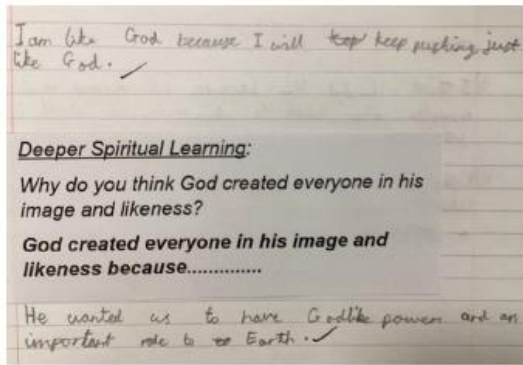 I am like God because I will keep pushing just
like God.
Deeper Spiritual Learning:
Why do you think God created everyone in his
image and likeness?
God created everyone in his image and
likeness because..............
He wanted us to have Godlike powers and an
important role to Earth.